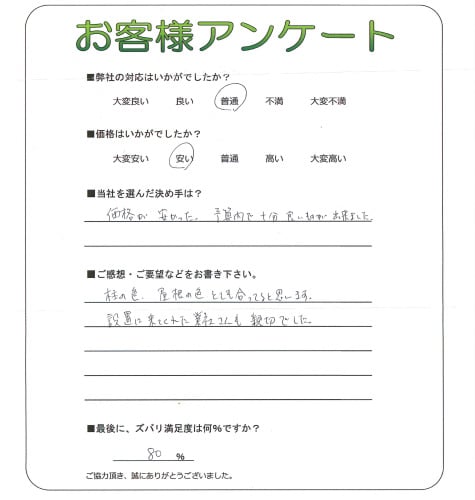 お客様アンケート
■弊社の対応はいかがでしたか？
大変良い 良い 普通 不満 大変不満
■価格はいかがでしたか？
大変安い 安い 普通 高い 大変高い
■当社を選んだ決め手は？
価格が安かった。予算内で十分良い物が出来ました
■ご感想・ご要望などをお書き下さい。
柱の色、屋根の色とても合ってると思います。
設置に来てくれた業者さんも親切でした。
■最後に、ズバリ満足度は何％ですか？
80 ％
ご協力頂き、誠にありがとうございました。